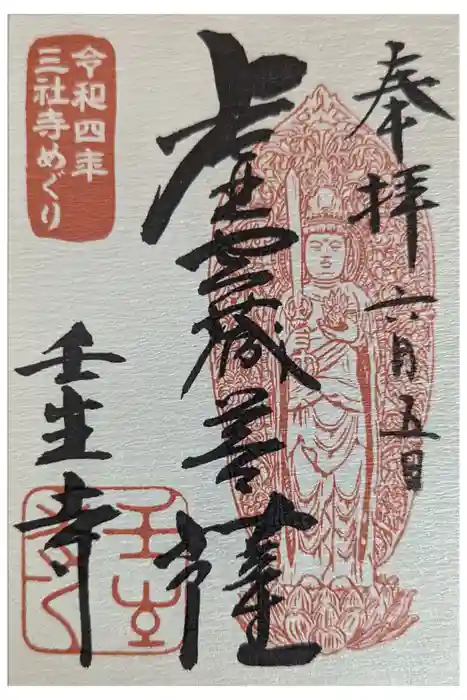 奉拝 六月五日
虚空蔵菩薩
令和四年
三社寺めぐり
壬生寺
壬生寺